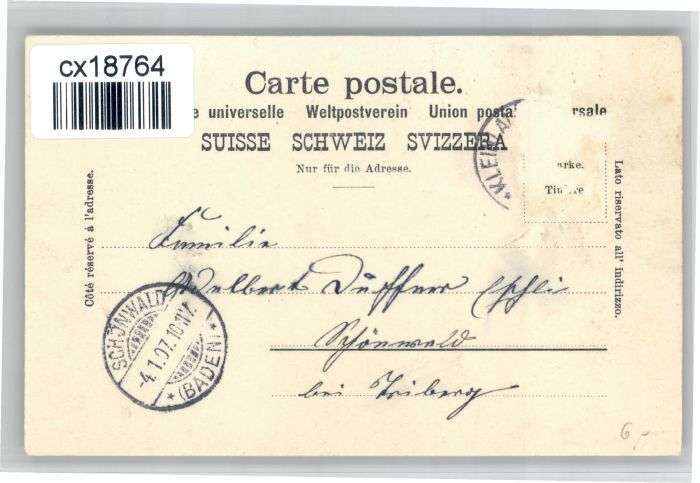 cx18764
Carte postale.
e universelle Weltpostverein Union posta ersale
SUISSE SCHWEIZ SVIZZERA
Nur für die Adresse.
*KLEINLA
arke.
Tim re
Côté réservé à l'adresse.
Lato riservato all' indirizzo.
Familie
Adelbert Duffner
Schönwald
bei Triberg
SCHÖNWALD
-4.1.07.10-11V.
*(BADEN)*
6,-